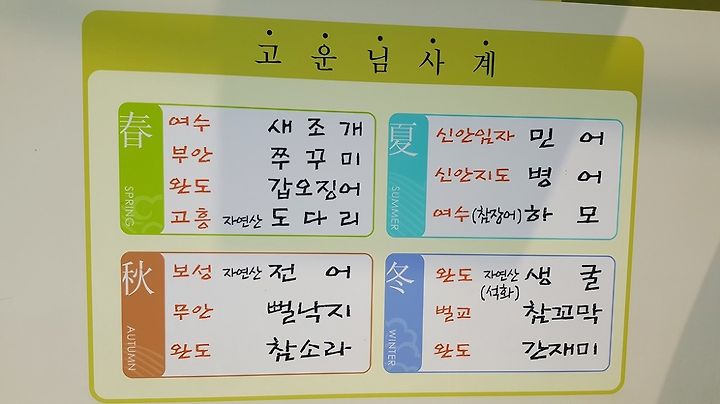 고운님사계
春
SPRING
여수 새조개
부안 쭈꾸미
완도 갑오징어
고흥 자연산 도다리
夏
SUMMER
신안임자 민어
신안지도 병어
여수(참장어) 하모
秋
AUTUMN
보성 자연산 전어
무안 뻘낙지
완도 참소라
冬
WINTER
완도 자연산(석화) 생굴
벌교 참꼬막
완도 간재미